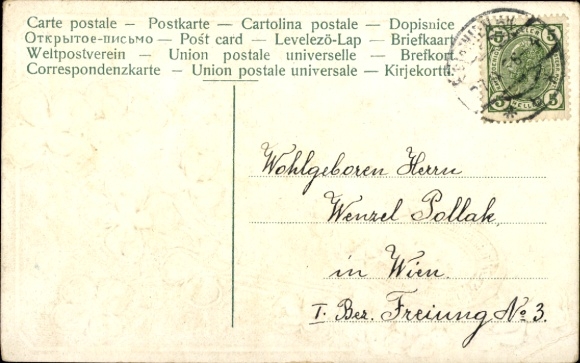 Carte postale – Postkarte – Cartolina postale – Dopisnice
Открытое-письмо – Post card – Levelező-Lap – Briefkaart
Weltpostverein – Union postale universelle – Brefkort
Correspondenzkarte – Union postale universale – Kirjekortti
5 5
5 HELLER 5
Wohlgeboren Herrn
Wenzel Pollak
in Wien.
I. Bez. Freiung No 3.